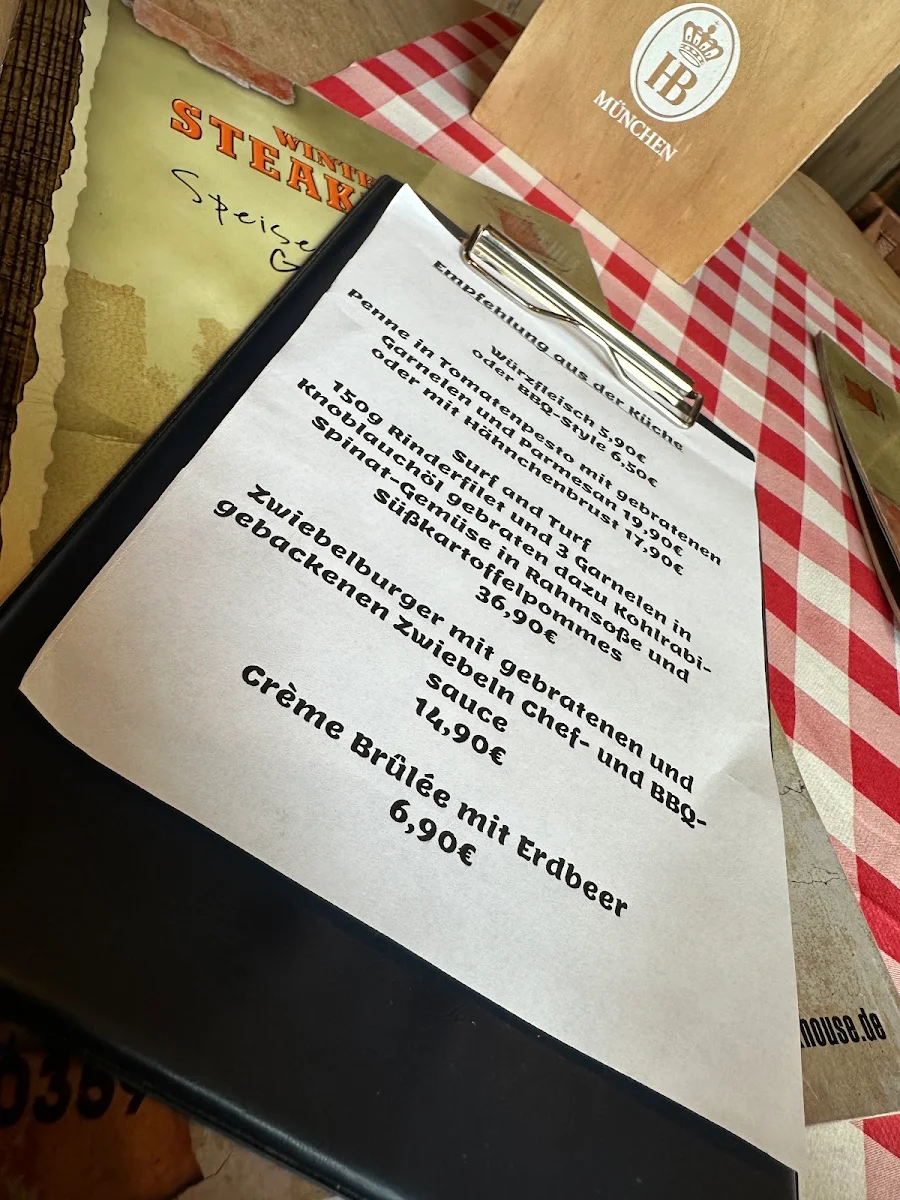 HB
MÜNCHEN
STEAK
Speise
Empfehlung aus der Küche
Würzfleisch 5,90€
oder BBQ-Style 6,50€
Penne in Tomatenpesto mit gebratenen
Garnelen und Parmesan 19,90€
oder mit Hähnchenbrust 17,90€
Surf and Turf
150g Rinderfilet und 3 Garnelen in
Knoblauchöl gebraten dazu Kohlrabi-
Spinat-Gemüse in Rahmsoße und
Süßkartoffelpommes
36,90€
Zwiebelburger mit gebratenen und
gebackenen Zwiebeln Chef- und BBQ-
sauce
14,90€
Crème Brûlée mit Erdbeer
6,90€
house.de